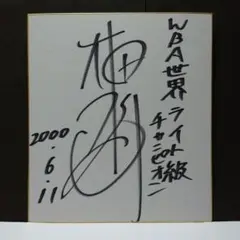 WBA世界
ライト級
チャンピオン
2000.6.11